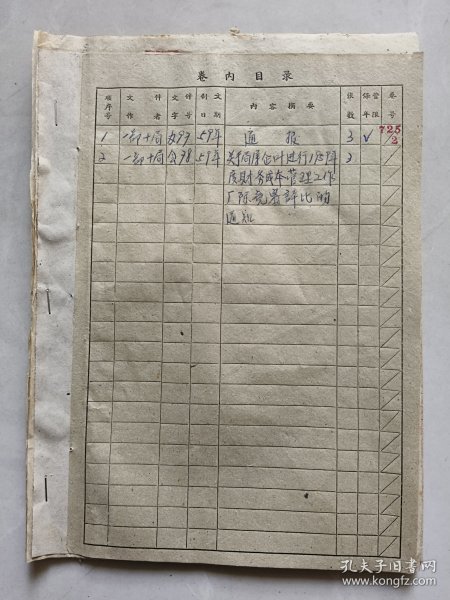 卷内目录
顺序号 文件作者 文件字号 文制日期 内容摘要 张数 保管年限 卷号
1 一部十局 99 59年 通报 3 √ 725/2
2 一部十局 98 59年 关于局属企业进行1959年 3
度财务成本管理工作
厂际竞赛评比的
通知
孔夫子旧书网
www.kongfz.com